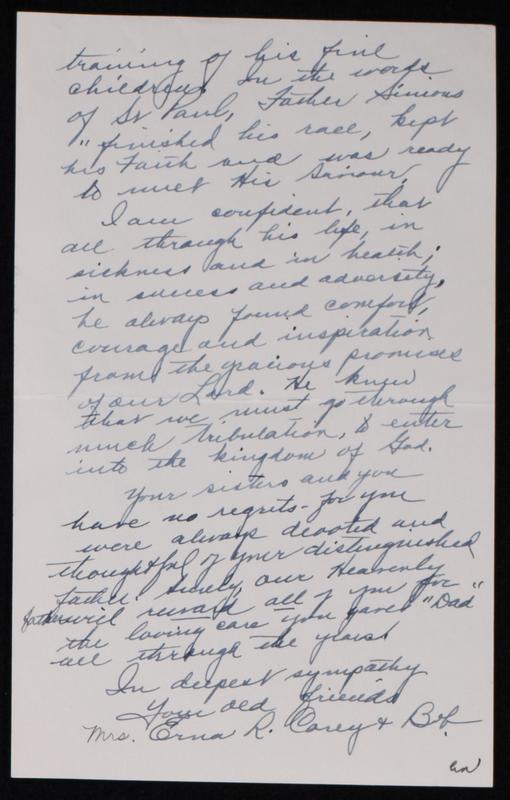 training of his fine
children. In the words
of St Paul, Father Simons
"finished his race, kept
his Faith and was ready
to meet His Saviour.
I am confident, that
all through his life, in
sickness and in health;
in success and adversity,
he always found comfort,
courage and inspiration
from the gracious promises
of our Lord. He knew
that we must go through
much tribulation, to enter
into the kingdom of God.
Your sisters and you
have no regrets - for you
were always devoted and
thoughtful of your distinguished
father. Surely, our Heavenly
Father will reward all of you for
the loving care you gave "Dad"
all through the years!
In deepest sympathy
Your old friends
Mrs. Erna R. Carey & Bob.